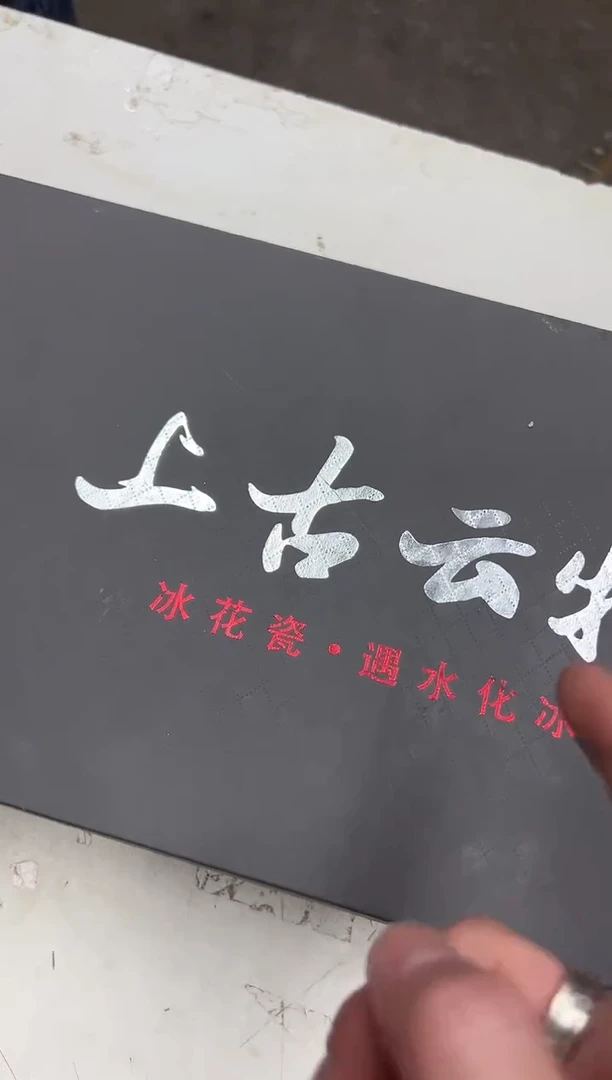 上古云
冰花瓷·遇水化冰